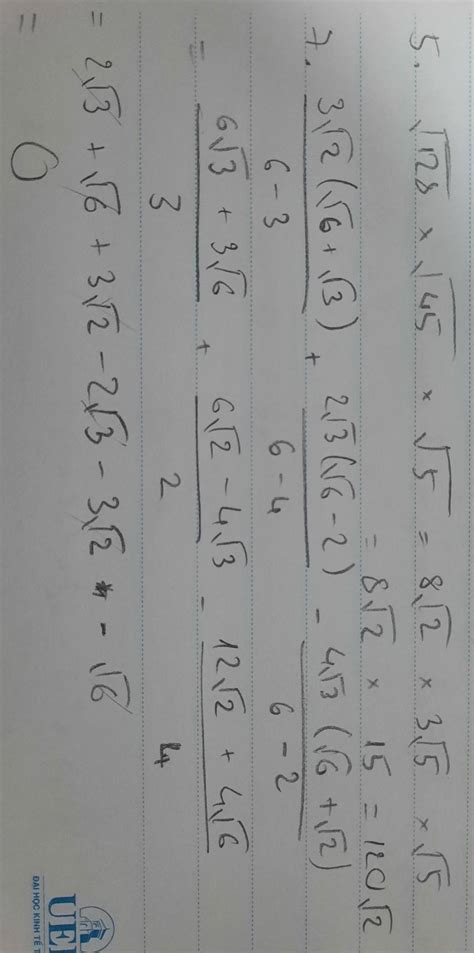 5. √128 × √45 × √5 = 8√2 × 3√5 × √5
= 8√2 × 15 = 120√2
7. 3√2(√6 + √3) / (6 - 3) + 2√3(√6 - 2) / (6 - 4) - 4√3(√6 + √2) / (6 - 2)
= (6√3 + 3√6) / 3 + (6√2 - 4√3) / 2 - (12√2 + 4√6) / 4
= 2√3 + √6 + 3√2 - 2√3 - 3√2 - √6
= 0
ĐẠI HỌC KINH TẾ